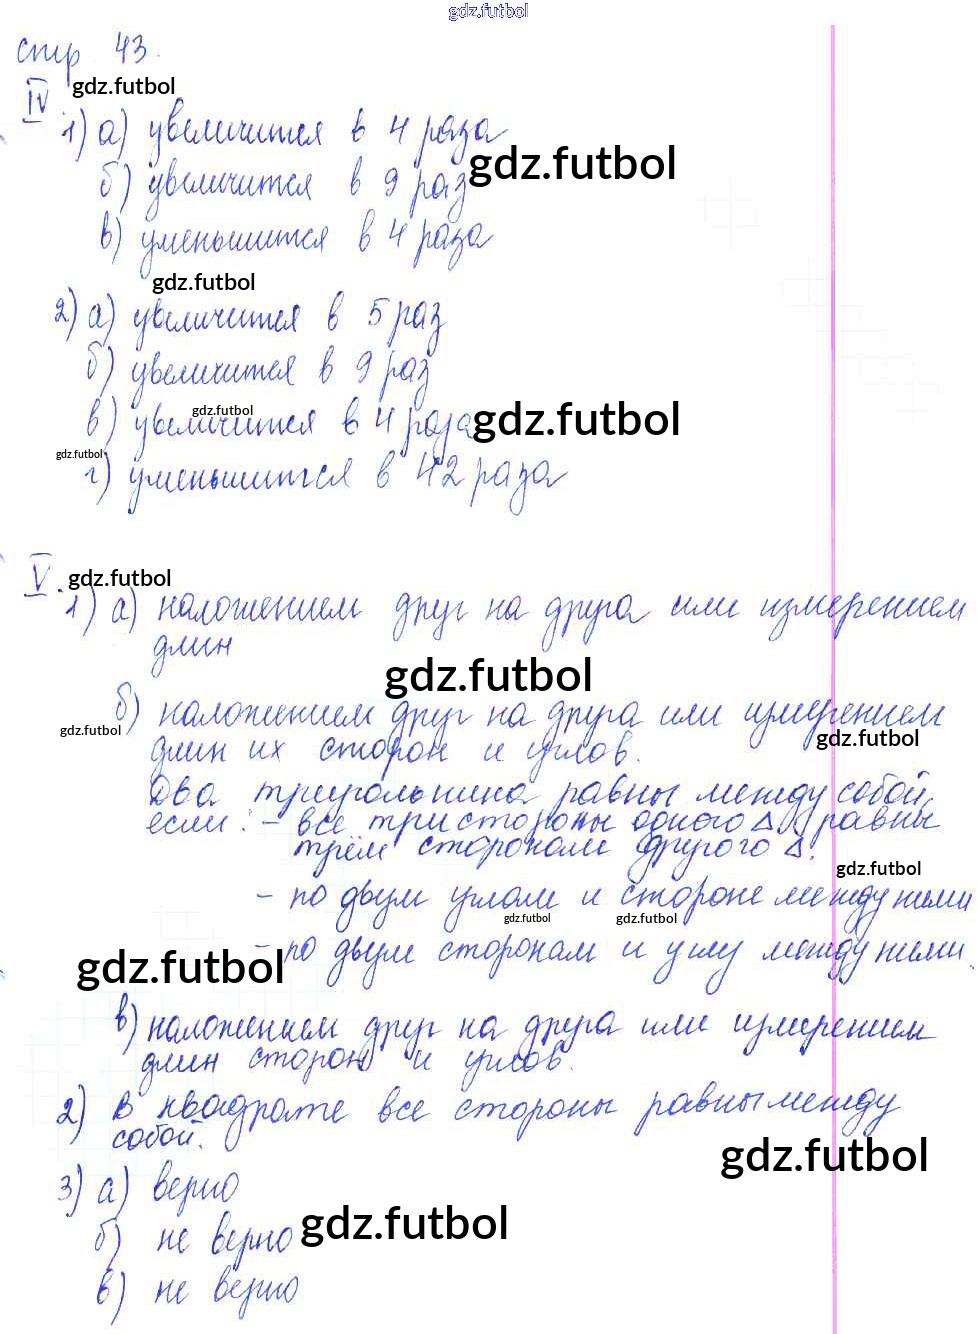 gdz.futbol
стр 43.
IV. gdz.futbol
1) а) увеличится в 4 раза
gdz.futbol
б) увеличится в 9 раз
в) уменьшится в 4 раза
gdz.futbol
2) а) увеличится в 5 раз
б) увеличится в 9 раз
gdz.futbol
в) увеличится в 4 раза gdz.futbol
gdz.futbol
г) уменьшится в 42 раза
V. gdz.futbol
1) а) наложением друг на друга или измерением
длин
gdz.futbol
б) наложением друг на друга или измерением
gdz.futbol gdz.futbol
длин их сторон и углов.
Два треугольника равны между собой,
если: - все три стороны одного Δ равны
трём сторонам другого Δ.
gdz.futbol
- по двум углам и стороне между ними
gdz.futbol gdz.futbol
- по двум сторонам и углу между ними.
gdz.futbol
в) наложением друг на друга или измерением
длин сторон и углов.
2) В квадрате все стороны равны между
собой.
gdz.futbol
3) а) верно
б) не верно gdz.futbol
в) не верно